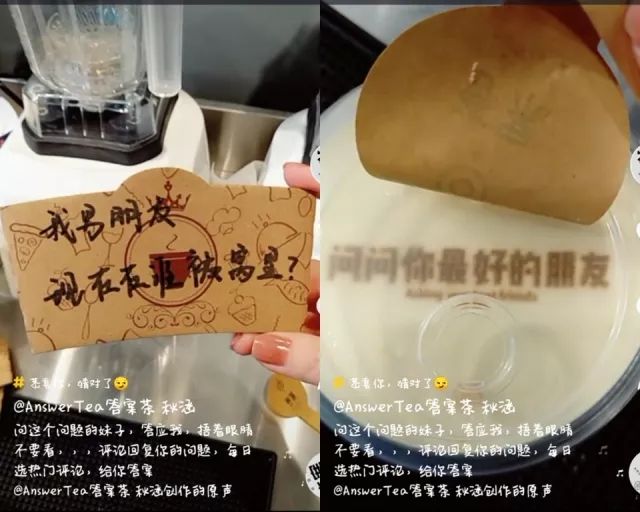 我男朋友
现在在谁被窝里?
#恭喜你,猜对了😏
@AnswerTea答案茶 秋涵
问这个问题的妹子,答应我,捂着眼睛
不要看,,,评论回复你的问题,每日
选热门评论,给你答案
@AnswerTea答案茶 秋涵创作的原声
问问你最好的朋友
Asking your best friends
#恭喜你,猜对了😏
@AnswerTea答案茶 秋涵
问这个问题的妹子,答应我,捂着眼睛
不要看,,,评论回复你的问题,每日
选热门评论,给你答案
@AnswerTea答案茶 秋涵创作的原声